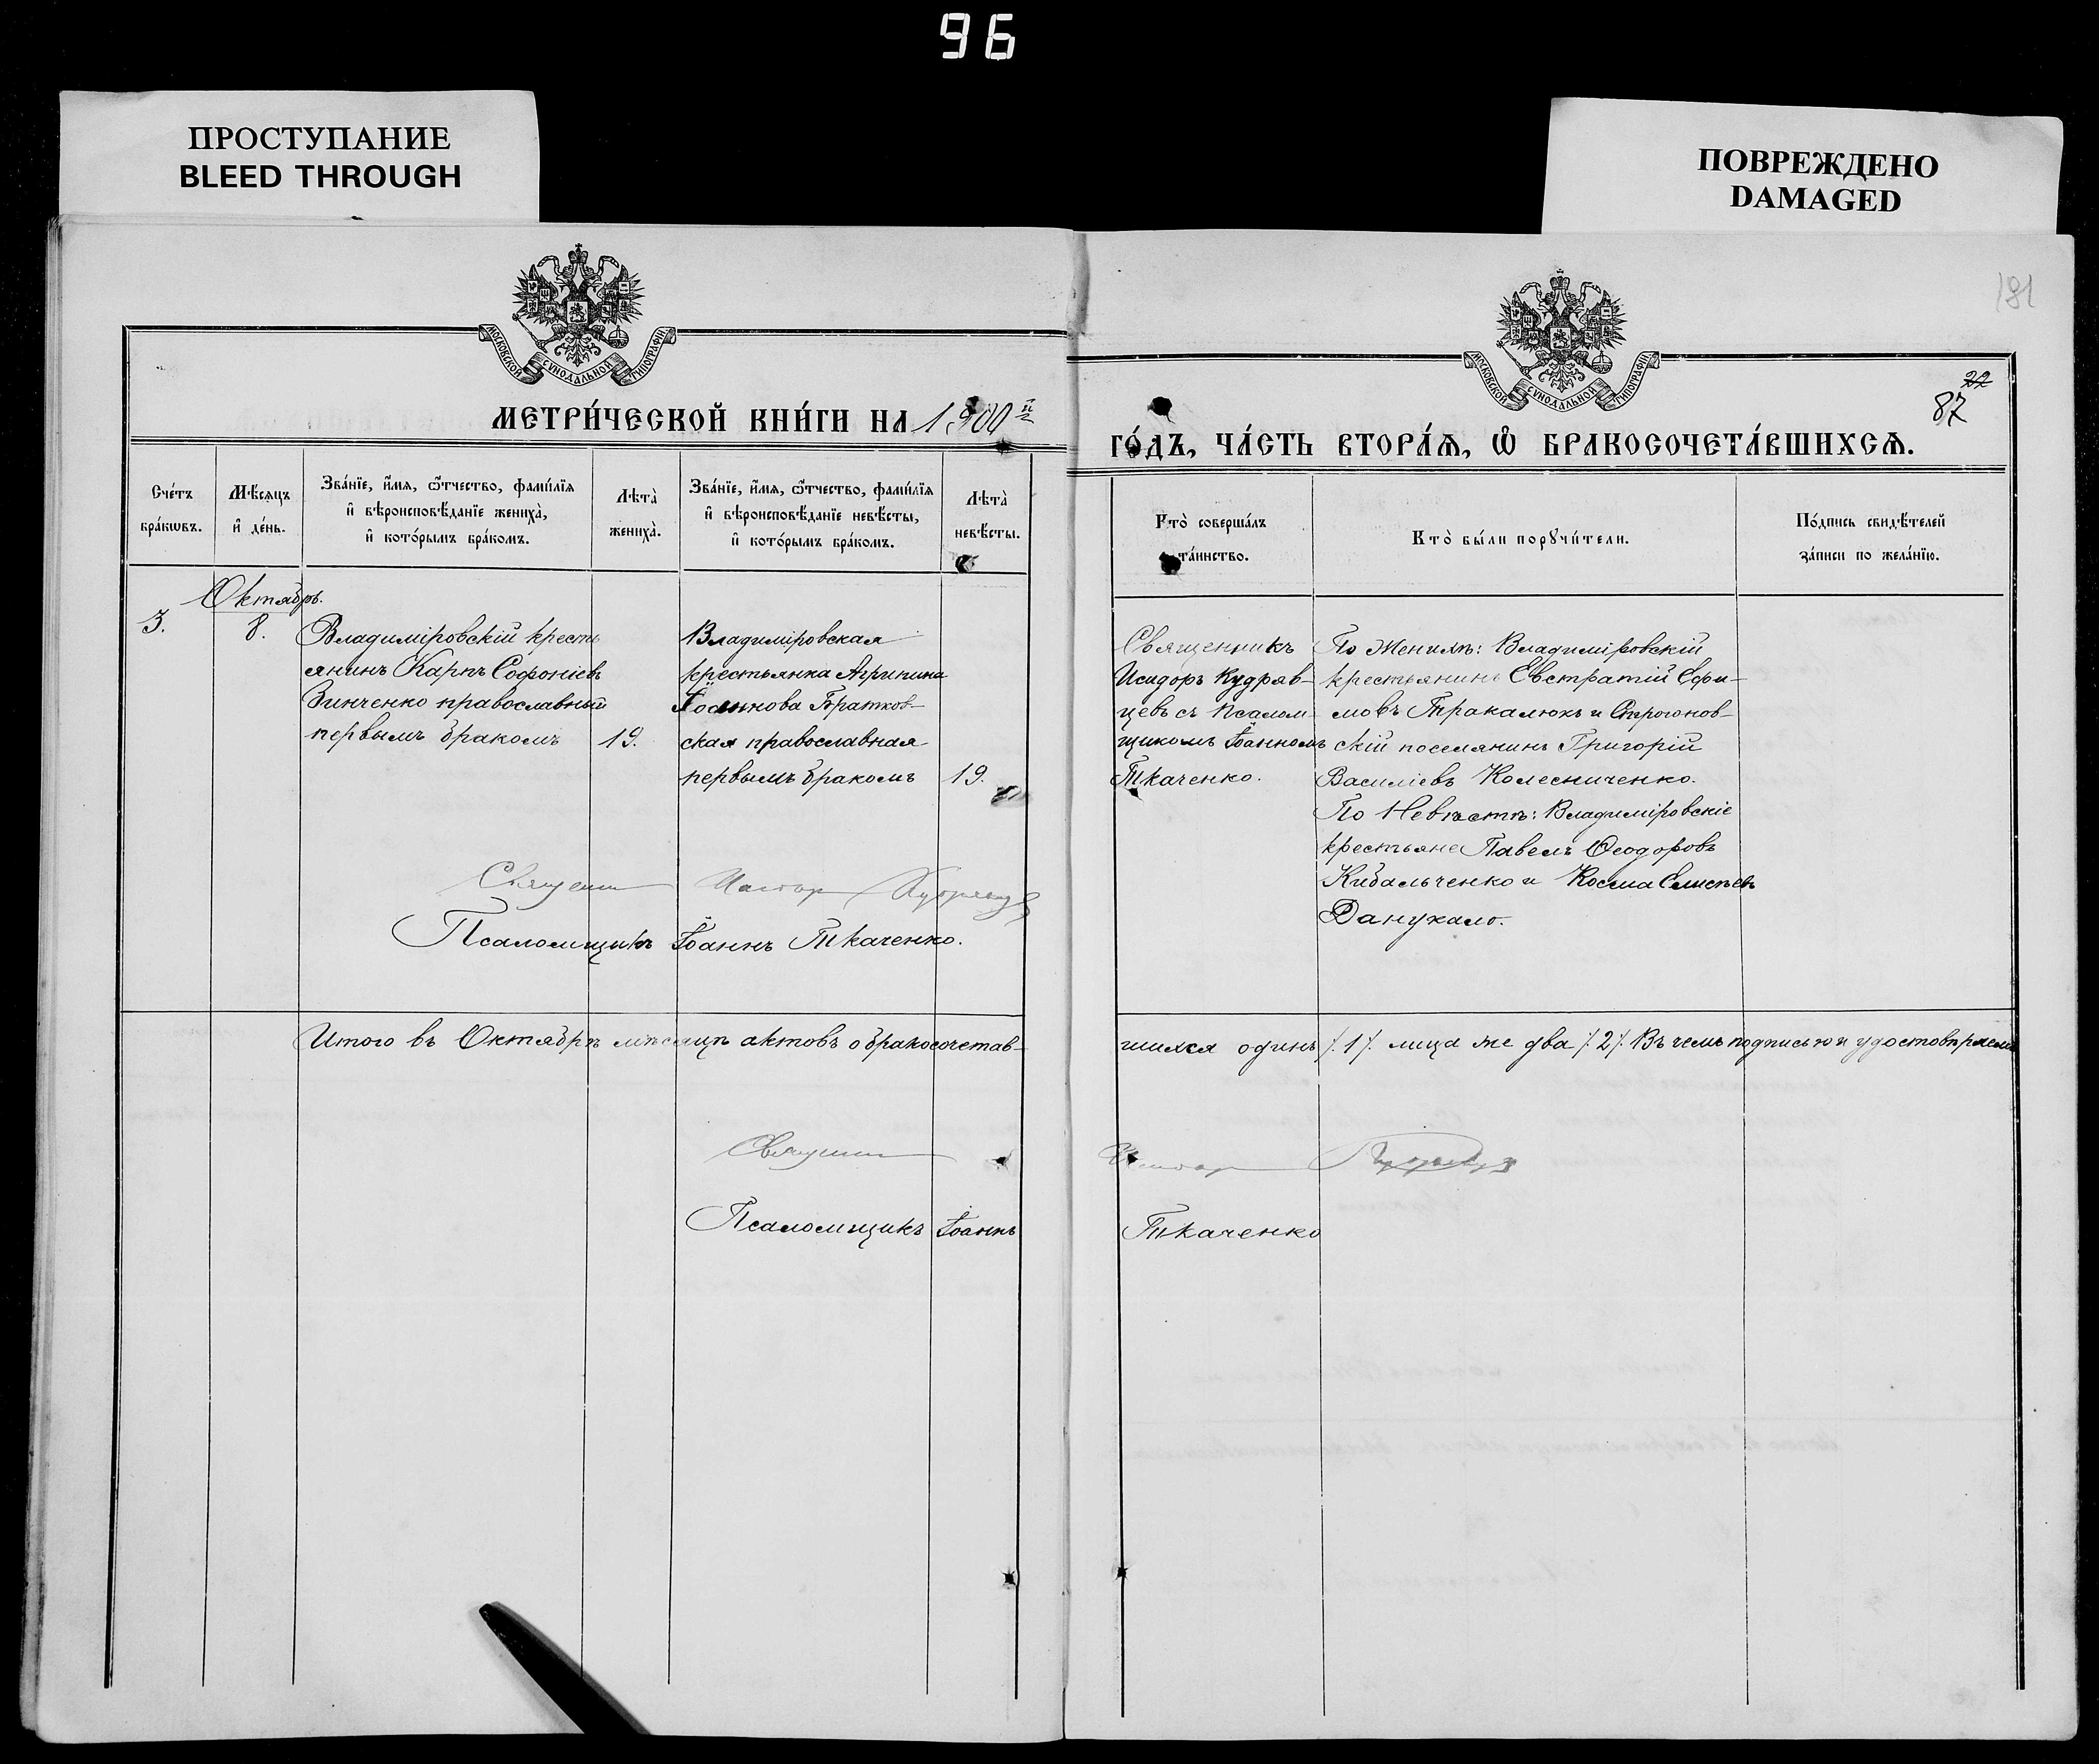 96
ПРОСТУПАНИЕ
BLEED THROUGH
ПОВРЕЖДЕНО
DAMAGED
181
МОСКОВСКОЙ СѴНОДАЛЬНОЙ ТИПОГРАФІИ
МОСКОВСКОЙ СѴНОДАЛЬНОЙ ТИПОГРАФІИ
22
87
МЕТРИ́ЧЕСКОЙ КНИ́ГИ НА 1900й
ГО́ДЪ, ЧА́СТЬ ВТОРА́Ѧ, Ѡ҆ БРАКОСОЧЕТА́ВШИХСѦ.
Сче́тъ
бра́кѡвъ.
Мѣ́сѧцъ
и҆ де́нь.
Зва́нїе, и҆́мѧ, ѻ҆́тчество, фами́лїѧ
и҆ вѣроисповѣ́данїе жениха̀,
и҆ кото́рымъ бра́комъ.
Лѣта̀
жениха̀.
Зва́нїе, и҆́мѧ, ѻ҆́тчество, фами́лїѧ
и҆ вѣроисповѣ́данїе невѣ́сты,
и҆ кото́рымъ бра́комъ.
Лѣта̀
невѣ́сты.
Кто̀ соверша́лъ
та́инство.
Кто̀ бы́ли порꙋчи́тели.
По́дпись свидѣ́телей
за́писи по жела́нїю.
Октябрь.
3.
8.
Владиміровскій кресть
янинъ Карпъ Софоніевъ
Зинченко православный
первымъ бракомъ
19.
Владиміровская
крестьянка Агрипина
Братков-
ская православная
первымъ бракомъ
19.
Священникъ
Исидоръ Кудряв-
цевъ съ Псалом-
щикомъ Іоанномъ
Ткаченко.
По Женихѣ: Владиміровскій
крестьянинъ Евстратій Ефи-
мовъ Тракалюкъ и
скій поселянинъ Григорій
Василіевъ Колесниченко.
По Невѣстѣ: Владиміровскіе
крестьяне Павелъ Ѳеодоровъ
Кибальченко и Косма Елисѣевъ
Данукало.
Священникъ Исидоръ Кудрявцевъ
Псаломщикъ Іоаннъ Ткаченко.
Итого въ Октябрѣ мѣсяцѣ актовъ о бракосочетав-
шихся одинъ /.1/. лица же два /.2/. Въ чемъ подписью и удостовѣряемъ
Священникъ
Исидоръ Кудрявцевъ
Псаломщикъ Іоаннъ
Ткаченко